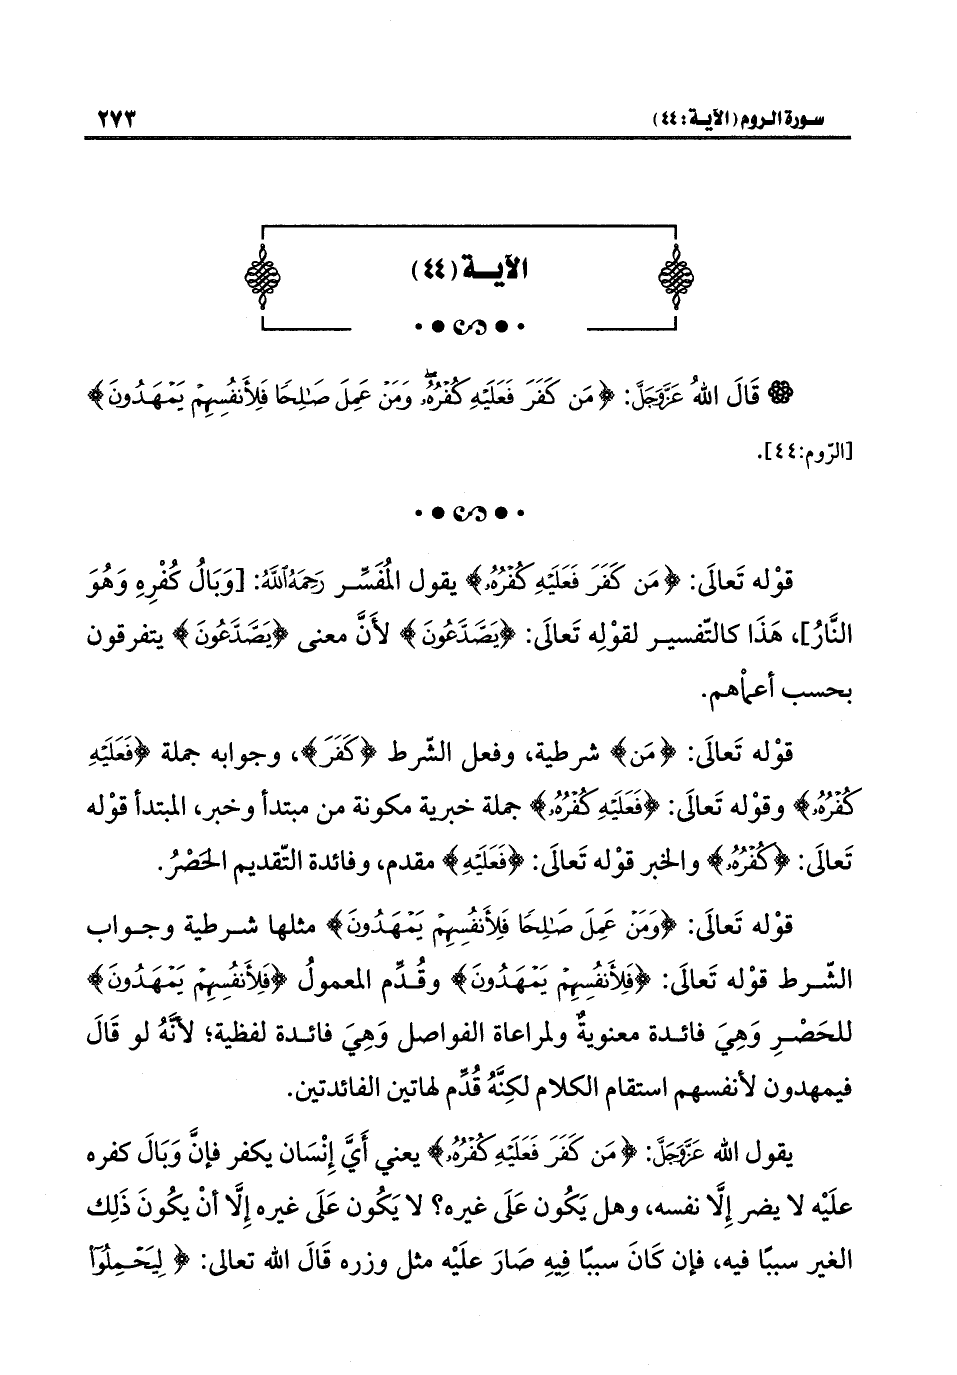 سورة الروم (الآية: ٤٤)
٢٧٣
الآية (٤٤)
قَالَ اللهُ عَزَّوَجَلَّ: ﴿مَن كَفَرَ فَعَلَيْهِ كُفْرُهُۥۖ وَمَنْ عَمِلَ صَٰلِحًا فَلِأَنفُسِهِمْ يَمْهَدُونَ﴾
[الرّوم:٤٤].
قوْله تَعالَى: ﴿مَن كَفَرَ فَعَلَيْهِ كُفْرُهُۥ﴾ يقول المُفَسِّر رَحِمَهُ اللَّهُ: [وَبَالُ كُفْرِهِ وَهُوَ
النَّارُ]، هَذَا كالتّفسير لقوْلِه تَعالَى: ﴿يَصَّدَّعُونَ﴾ لأنَّ معنى ﴿يَصَّدَّعُونَ﴾ يتفرقون
بحسب أعمالهم.
قوْله تَعالَى: ﴿مَن﴾ شرطية، وفعل الشّرط ﴿كَفَرَ﴾، وجوابه جملة ﴿فَعَلَيْهِ
كُفْرُهُۥ﴾ وقوْله تَعالَى: ﴿فَعَلَيْهِ كُفْرُهُۥ﴾ جملة خبرية مكونة من مبتدأ وخبر، المبتدأ قوْله
تَعالَى: ﴿كُفْرُهُۥ﴾ والخبر قوْله تَعالَى: ﴿فَعَلَيْهِ﴾ مقدم، وفائدة التّقديم الحَصْرُ.
قوْله تَعالَى: ﴿وَمَنْ عَمِلَ صَٰلِحًا فَلِأَنفُسِهِمْ يَمْهَدُونَ﴾ مثلها شرطية وجواب
الشّرط قوْله تَعالَى: ﴿فَلِأَنفُسِهِمْ يَمْهَدُونَ﴾ وقُدِّم المعمولُ ﴿فَلِأَنفُسِهِمْ يَمْهَدُونَ﴾
للحَصْرِ وَهِيَ فائدة معنويةٌ ولمراعاة الفواصل وَهِيَ فائدة لفظية؛ لأنَّهُ لو قَالَ
فيمهدون لأنفسهم استقام الكلام لكِنَّهُ قُدِّم لهاتين الفائدتين.
يقول الله عَزَّوَجَلَّ: ﴿مَن كَفَرَ فَعَلَيْهِ كُفْرُهُۥ﴾ يعني أَيَّ إِنْسَان يكفر فإنَّ وَبَالَ كفره
علَيْه لا يضر إِلَّا نفسه، وهل يَكُون عَلَى غيره؟ لا يَكُون عَلَى غيره إِلَّا أنْ يكُونَ ذَلِك
الغير سببًا فيه، فإن كَانَ سببًا فِيهِ صَارَ علَيْه مثل وزره قَالَ الله تعالى: ﴿لِيَحْمِلُوٓا۟